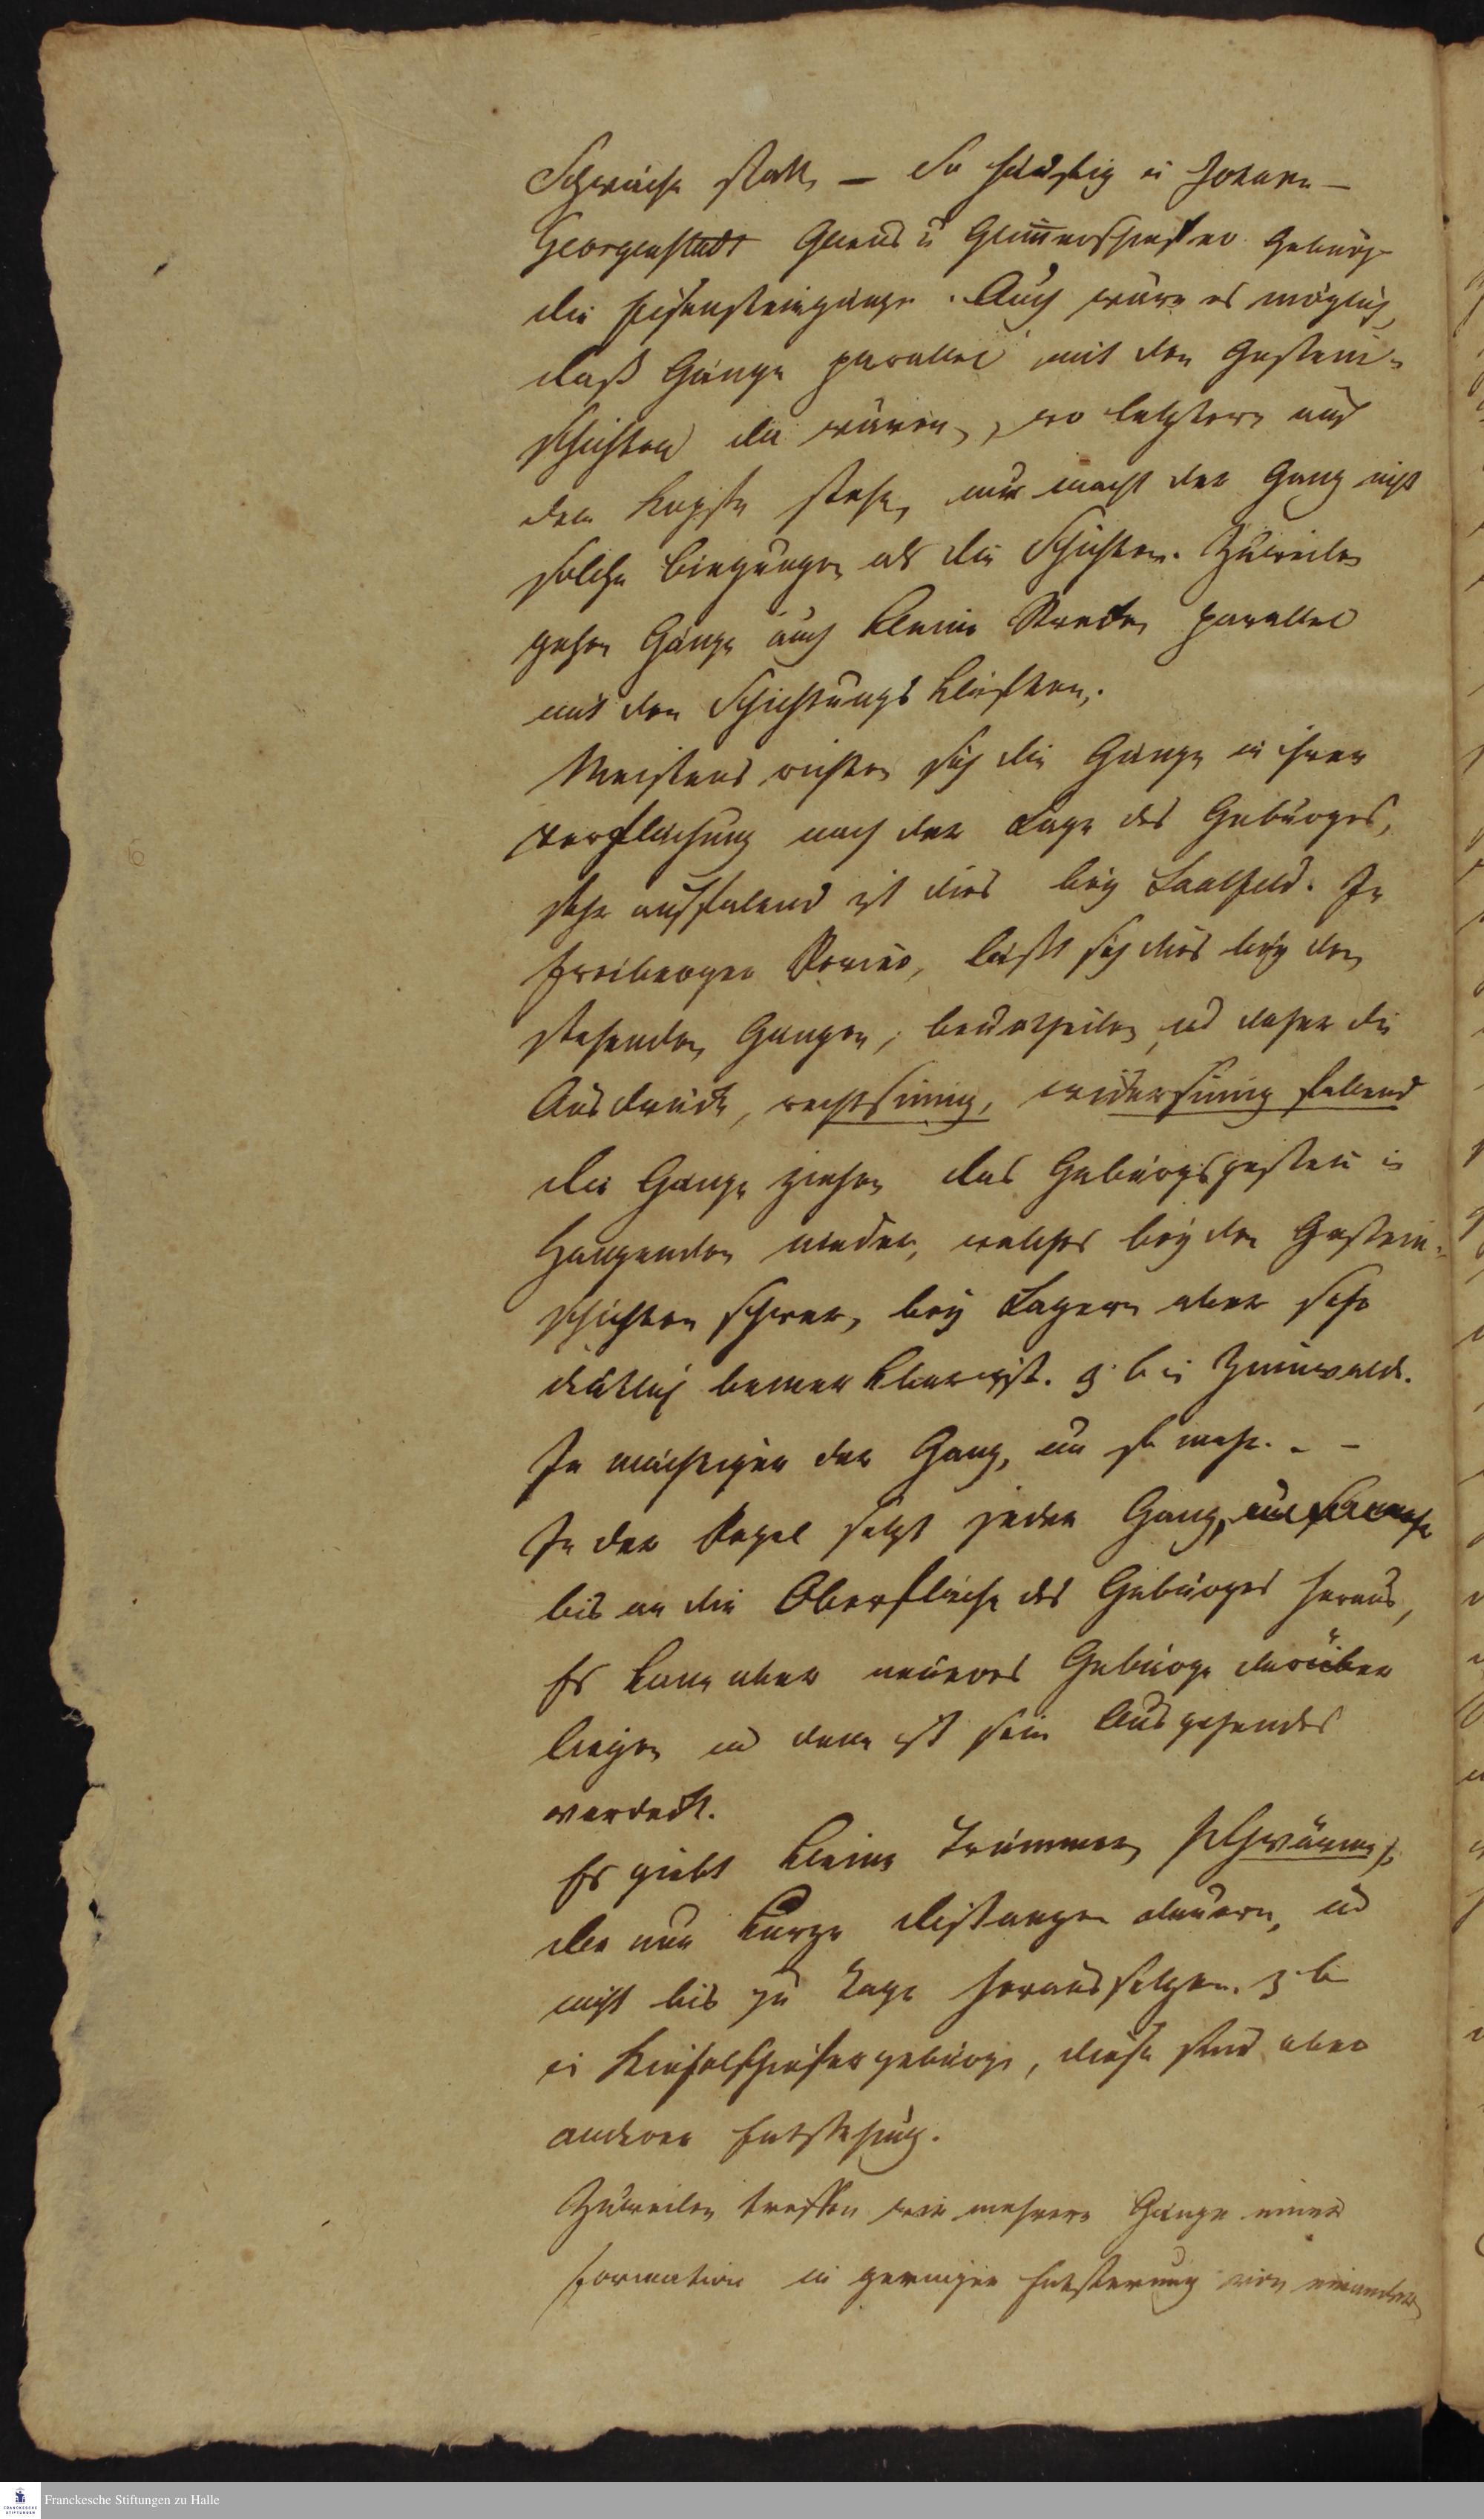 Schwäche statt, — So häufig in Johann-
Georgenstadt Gneus u Glimmerschiefer Gebürge
die Eisensteingänge. Auch wäre es möglich,
daß Gänge parallel mit den Gestein-
schichten da wären, wo letztere auf
dem Kopfe stehn, nur macht der Gang nicht
solche Biegungen als die Schichten. Zuweilen
gehen Gänge auch kleine Strecken parallel
mit den Schichtungs Klüften.
Meistens richten sich die Gänge in ihrer
Verflächung nach der Lage des Gebürges,
sehr auffalend ist dies bey Saalfeld. In
Freiberger Revier, läßt sich dies bey den
stehenden Gangen, beurtheilen, und daher die
Ausdrücke, rechtsinnig, widersinnig fallend
Die Gänge ziehen das Gebürgsgestein in
Hangenden nieder, welches bey den Gestein-
schichten schwer, bey Lagern aber sehr
deutlich bemerkbar ist. z. b in Zinnwalde.
Je mächtiger der Gang, um so mehr. . –
In der Regel setzt jeder Gang,
bis an die Oberfläche des Gebürges heraus,
Es kann aber neueres Gebürge darüber
liegen und dann ist sein Ausgehendes
verdeckt.
Es giebt kleine Trümmer, /Schwärme/,
die nur kurze Distanzen dauern, und
nicht bis zu Tage heraussetzen. z. b
in Kieselschiefergebürge, diese sind aber
anderer Entstehung.
Zuweilen treffen wir mehrere Gänge einer
Formation in geringer Entfernung von einander
Franckesche Stiftungen zu Halle